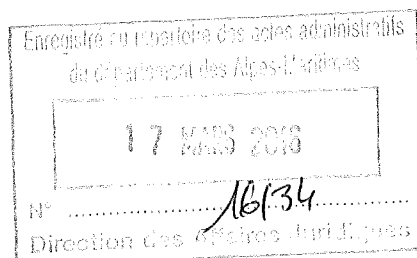 Enregistré au répertoire des actes administratifs
du département des Alpes-Maritimes
17 MARS 2016
N° .......................... 16/34
Direction des Affaires Juridiques